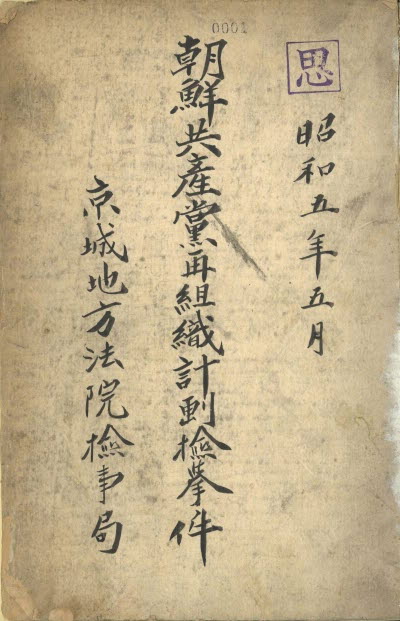 0001
思
昭和五年五月
朝鮮共產黨再組織計劃檢擧件
京城地方法院檢事局